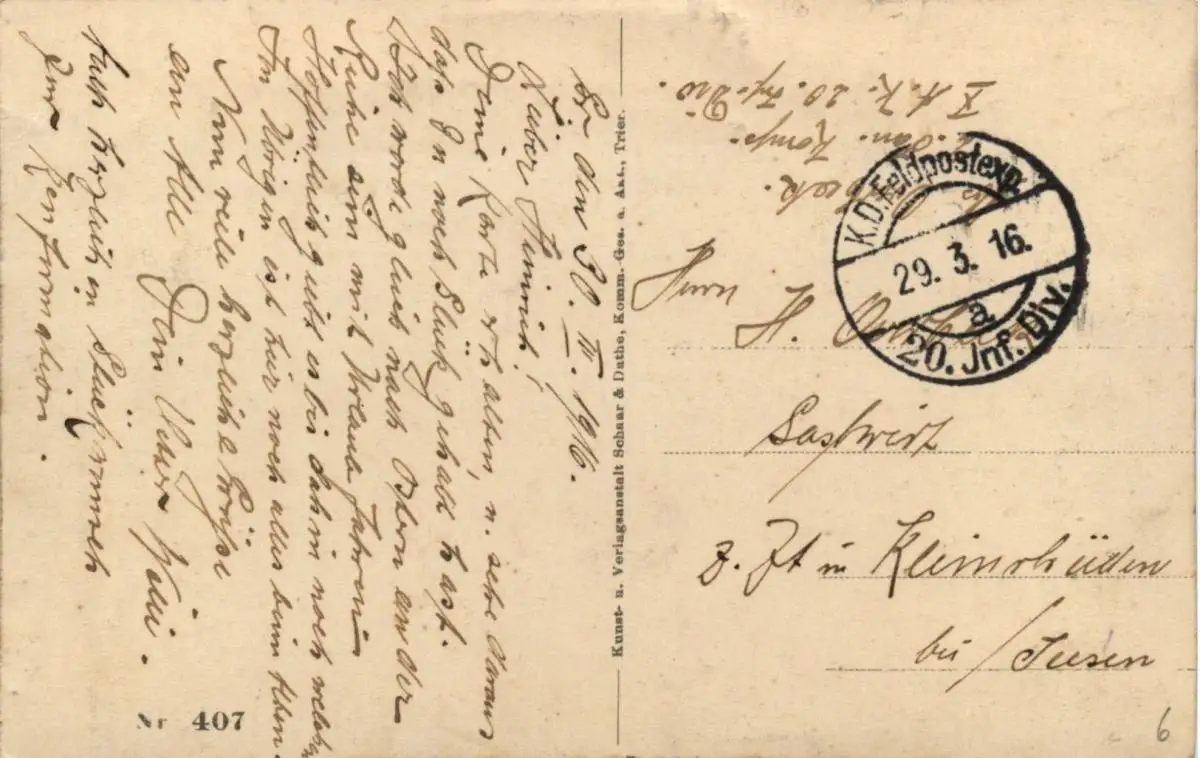 Br den 30. III. 1916.
Lieber Heinrich!
Deine Karte erhalten, u. sehe daraus
daß Du noch Glück gehabt hast.
Ich werde gleich nach Ostern an der
Reihe sein mit Urlaub fahren
Hoffentlich gibt es bis dahin noch welchen
Im Übrigen ist hier noch alles beim Alten.
Nun viele herzliche Grüße
an Alle Dein Vetter Willi.
Auch herzlichen Glückwunsch
zur Konfirmation.
Nr 407
Kunst- u. Verlagsanstalt Schaar & Dathe, Komm. Ges. a. Akt., Trier.
San. Komp.
X A. K. 20. Inf. Div.
K.D. Feldpostexp.
29. 3. 16.
a
20. Inf. Div.
Herrn H.
Gastwirt
z. Zt in Kleinrhüden
bei / Seesen
6